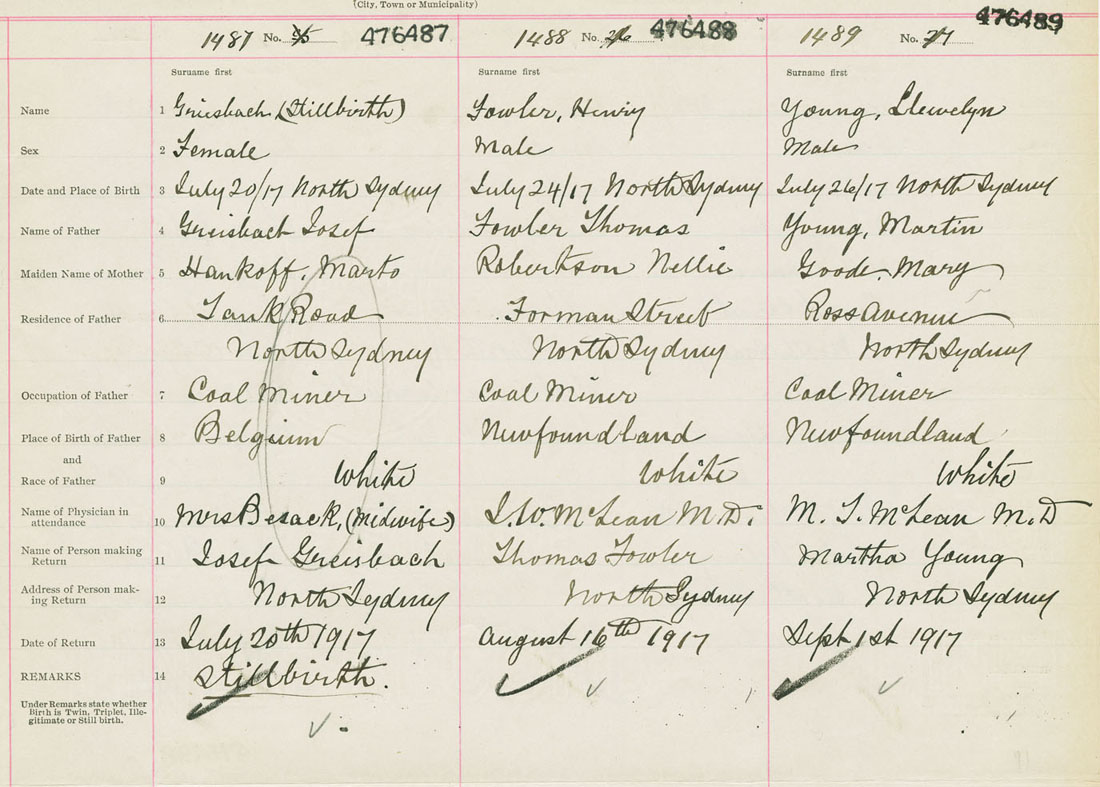 (City, Town or Municipality)
1487 No. 25 476487 1488 No. 26 476488 1489 No. 27 476489
Surname first Surname first Surname first
Name 1 Greisbach, (Stillbirth) Fowler, Henry Young, Llewelyn
Sex 2 Female Male Male
Date and Place of Birth 3 July 20/17 North Sydney July 24/17 North Sydney July 26/17 North Sydney
Name of Father 4 Greisbach Iosef Fowler Thomas Young, Martin
Maiden Name of Mother 5 Hankoff, Marto Robertson Nellie Goode, Mary
Residence of Father 6 Tank Road Forman Street Ross Avenue
North Sydney North Sydney North Sydney
Occupation of Father 7 Coal Miner Coal Miner Coal Miner
Place of Birth of Father 8 Belgium Newfoundland Newfoundland
and
Race of Father 9 White White White
Name of Physician in
attendance 10 Mrs Besack, (Midwife) L.W. McLean M.D. M. T. McLean M.D
Name of Person making
Return 11 Iosef Greisbach Thomas Fowler Martha Young
Address of Person mak-
ing Return 12 North Sydney North Sydney North Sydney
Date of Return 13 July 20th 1917 August 16th 1917 Sept 1st 1917
REMARKS 14 Stillbirth.
Under Remarks state whether
Birth is Twin, Triplet, Ille-
gitimate or Still birth.